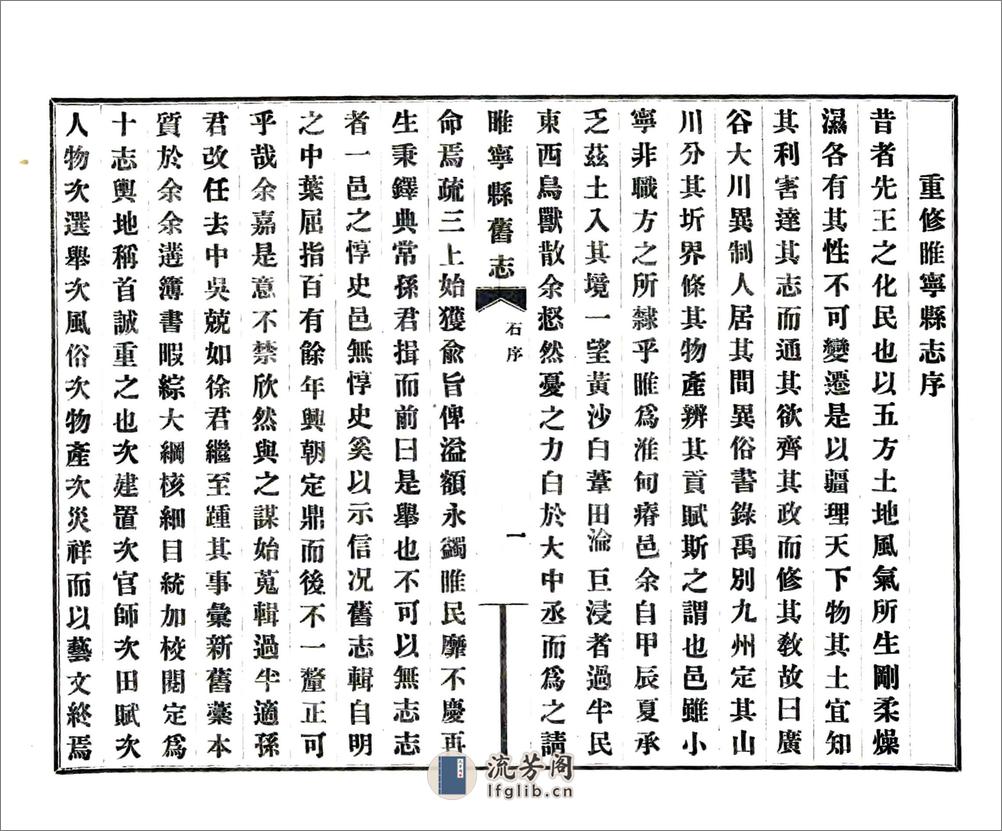 重修睢寧縣志序
昔者先王之化民也以五方土地風氣所生剛柔燥
濕各有其性不可變遷是以疆理天下物其土宜知
其利害達其志而通其欲齊其政而修其敎故曰廣
谷大川異制人居其間異俗書錄禹別九州定其山
川分其圻界條其物產辨其貢賦斯之謂也邑雖小
寧非職方之所隸乎睢爲淮甸瘠邑余自甲辰夏承
乏茲土入其境一望黃沙白葦田淪巨浸者過半民
東西鳥獸散余惄然憂之力白於大中丞而爲之請
睢寧縣舊志
石序
一
命焉疏三上始獲俞旨俾溢額永蠲睢民靡不慶再
生秉鐸典常孫君揖而前曰是舉也不可以無志志
者一邑之惇史邑無惇史奚以示信况舊志輯自明
之中葉屈指百有餘年興朝定鼎而後不一釐正可
乎哉余嘉是意不禁欣然與之謀始蒐輯過半適孫
君改任去中吳兢如徐君繼至踵其事彙新舊藁本
質於余余遘簿書暇綜大綱核細目統加校閱定爲
十志輿地稱首誠重之也次建置次官師次田賦次
人物次選舉次風俗次物產次災祥而以藝文終焉
流芳阁
lfglib.cn